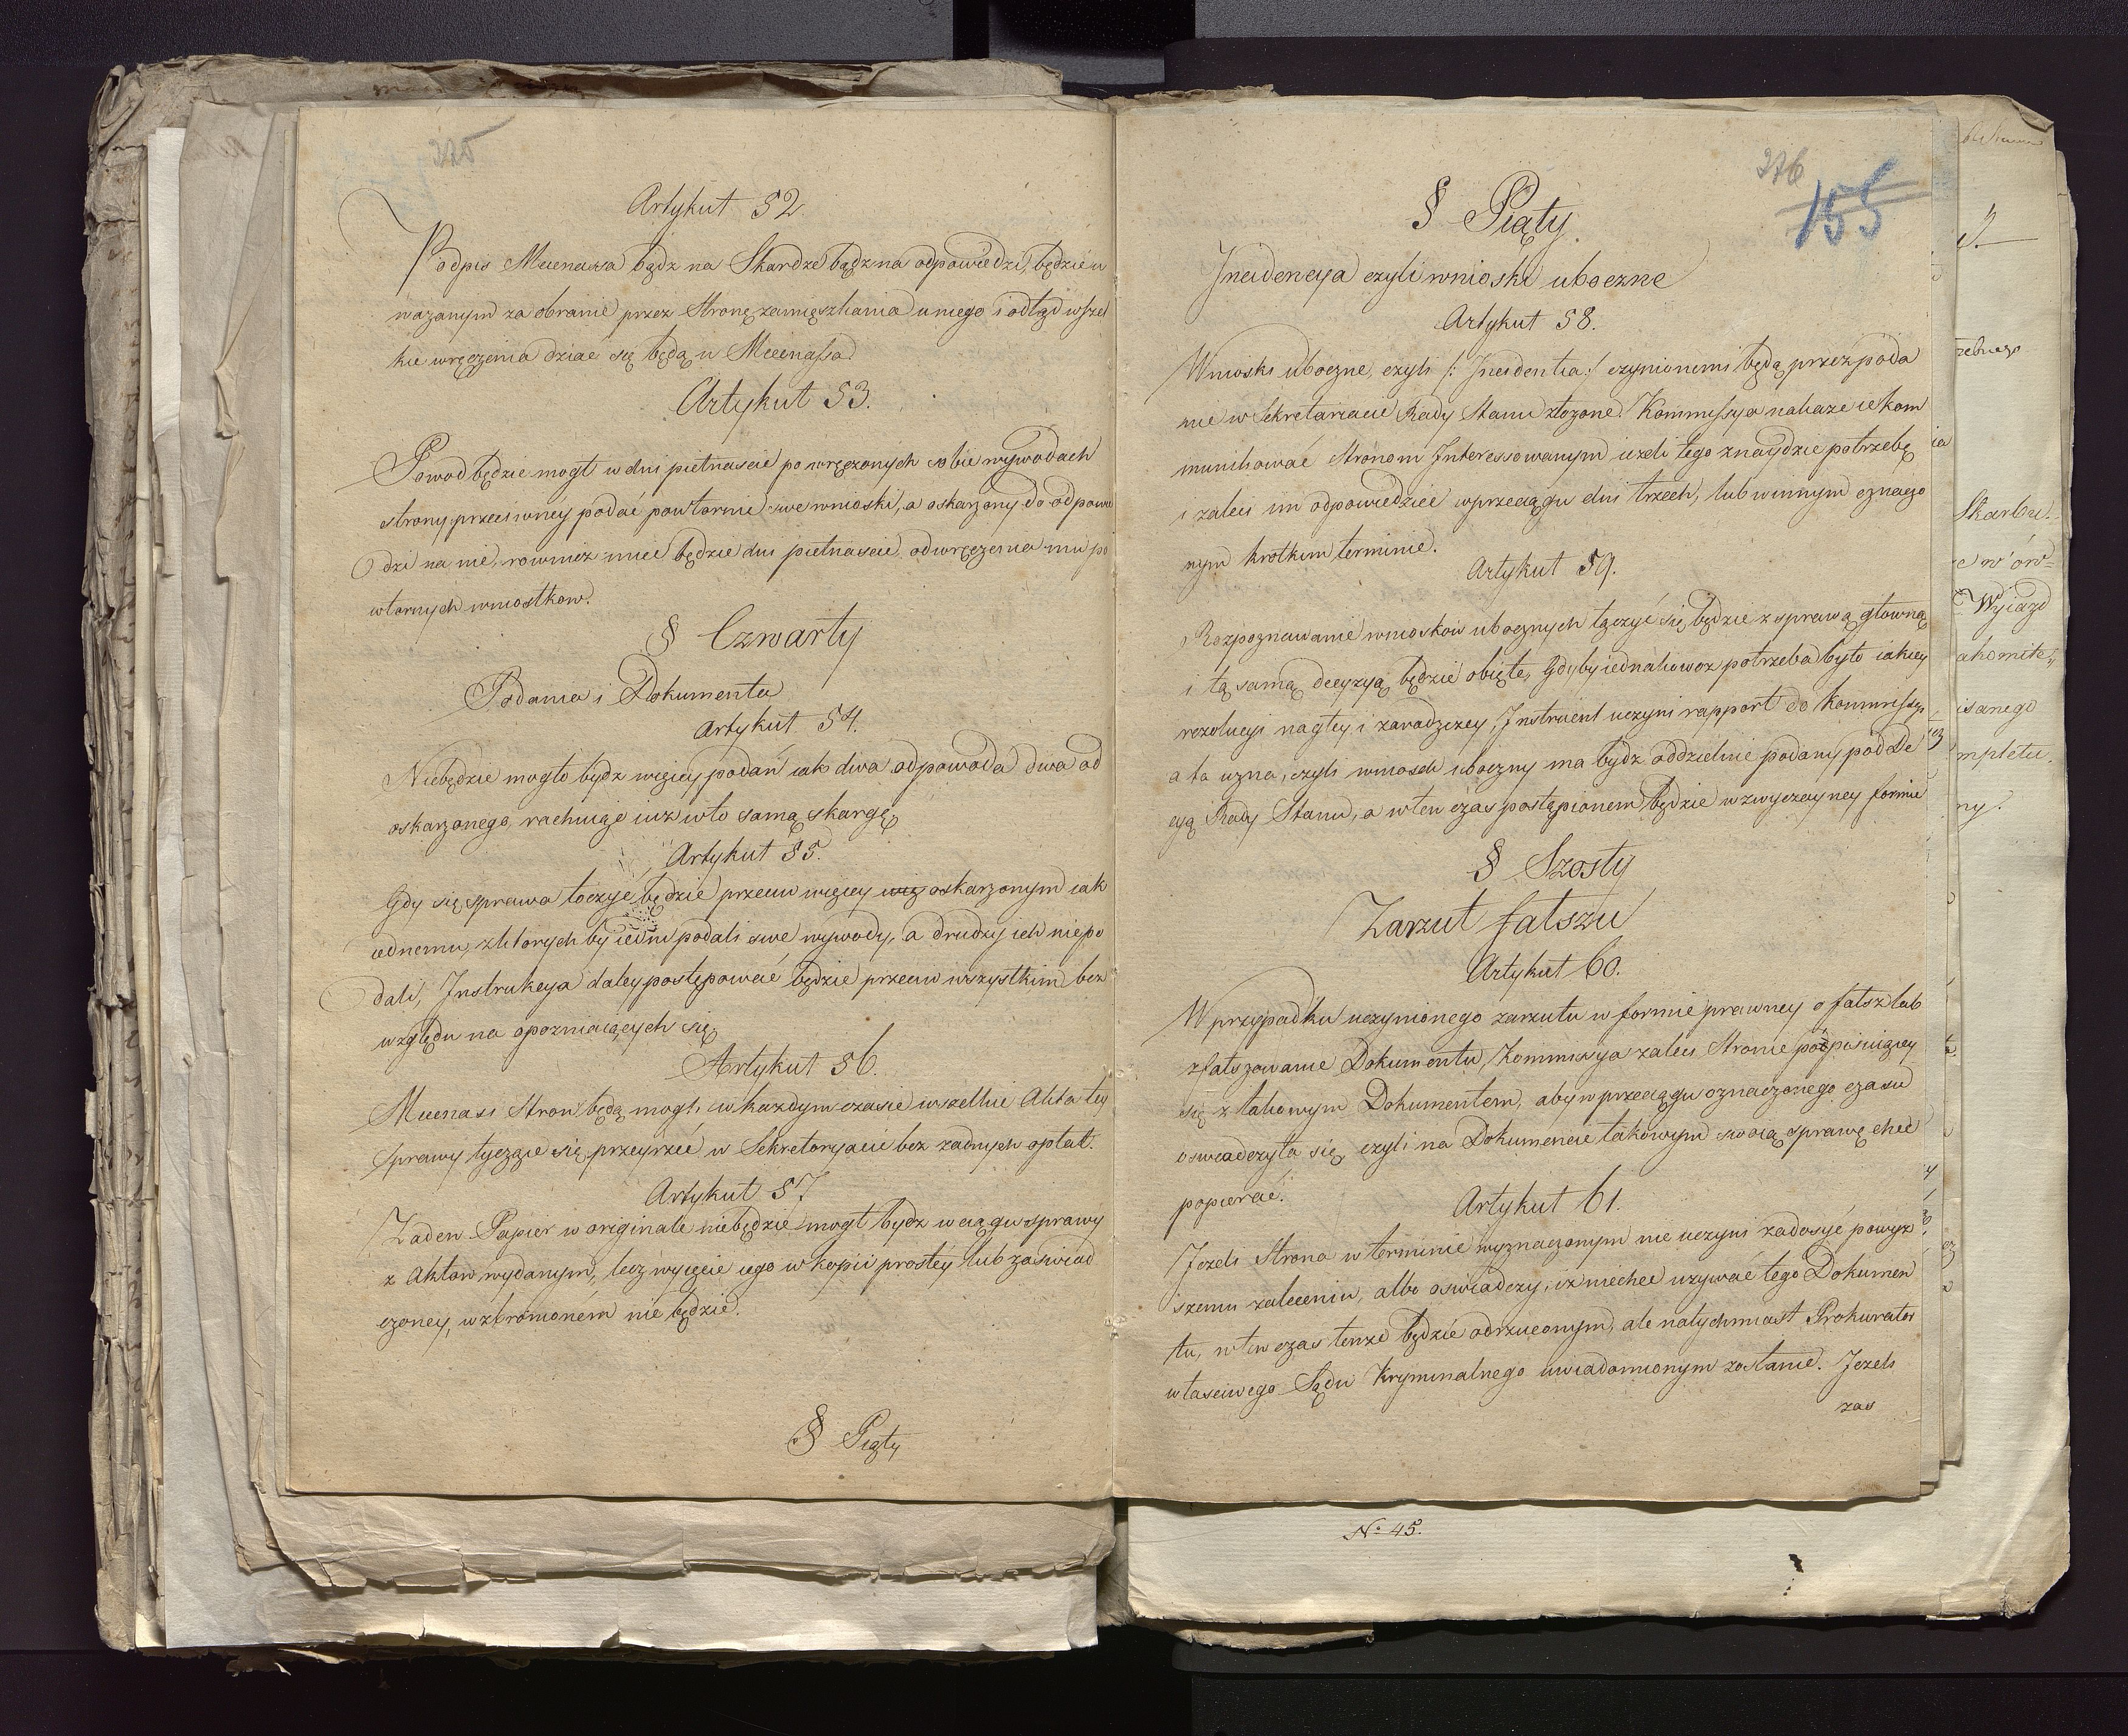 325
Artykuł 52.
Podpis Mecenasa bądz na Skardze bądz na odpowiedzi, będzie u
ważanym za obranie przez Stronę zamięszkania u niego i odtąd wszel
kie wręczenia dziać się będą u Mecenassa
Artykuł 53.
Powod będzie mogł w dni pietnascie po wręczonych sobie wywodach
strony przeciwnéy podać powtornie swe wnioski, a oskarzony do odpowie
dzi na nie, rownież miec będzie dni pietnascie od wręczenia mu po
wtornych wniostkow.
§ Czwarty
Podania i Dokumenta
Artykuł 54.
Niebędzie mogło bydz więcey podań iak dwa od powoda dwa od
oskarzonego, rachuiąc iuz w to samą skargę
Artykuł 55.
Gdy się sprawa toczyć będzie przeciw więcey więc oskarzonym iak
iednemu, z ktorych by iedni podali swe wywody, a drudzy ich niepo
dali, Instrukcya daley postępować będzie przeciw wszystkim bez
względu na opozniaiących się
Artykuł 56.
Mecenasi Stron będą mogli w kazdym czasie wszelkie Akta tey
sprawy tyczące się przeyrzeć w Sekretaryacie bez zadnych opłat.
Artykuł 57.
Zaden Papier w originale niebędzie mogł bydz w ciągu sprawy
z Aktow wydanym, lecz wyięcie iego w kopii prostey lub zaswiad
czoney, wzbronioném nie będzie.
§ Piąty
326
155
§ Piąty.
Incidencya czyli wnioski uboczne
Artykuł 58.
Wnioski uboczne, czyli /: Incidentia :/ czynionemi będą przez poda
nie w Sekretariacie Rady Stanu złozone. Kommissya nakaze ie kom
munikować Stronom Interessowanym iezeli tego znaydzie potrzebę
i zaleci im odpowiedziec w przeciągu dni trzech, lub w innym oznaczo
nym krotkim terminie.
Artykuł 59.
Rozpoznawanie wnioskow ubocznych łączyć się będzie z sprawą głowną
i tą samą decyzyą będzie obięte, Gdyby iednakowoz potrzeba było iakiey
rezolucyi nagłey i zaradzczey, Instruent uczyni rapport do Kommissyi
a ta uzna, czyli wniosek uboczny ma bydz oddzielnie podany pod De
cyzą Rady Stanu, a w ten czas postąpionem będzie w zwyczayney formie
§ Szosty
Zarzut fałszu
Artykuł 60.
W przypadku uczynionego zarzutu w formie prawney o fałsz lub
zfałszowanie Dokumentu, Kommissya zaleci Stronie podpisuiącey
się z takowym Dokumentem, aby w przeciągu oznaczonego czasu
oswiadczyła się, czyli na Dokumencie takowym swoią sprawę chce
popierać.
Artykuł 61.
Jezeli Strona w terminie wyznaczonym nie uczyni zadosyć powyż
szemu zaleceniu, albo oswiadczy, iż niechce uzywać tego Dokumen
tu, w ten czas tenze będzie odrzuconym, ale natychmiast Prokurator
własciwego Sądu Kryminalnego uwiadomionym zostanie. Jezeli
zas
N° 45.
Skarbu.
Wyiazd